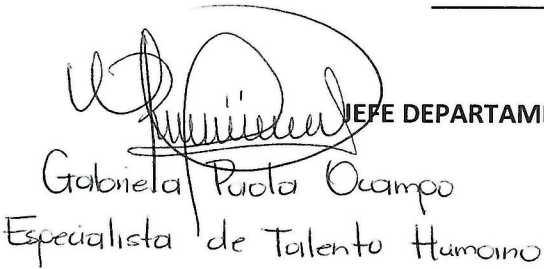 JEFE DEPARTAM
Gabriela Paola Ocampo
Especialista de Talento Humano